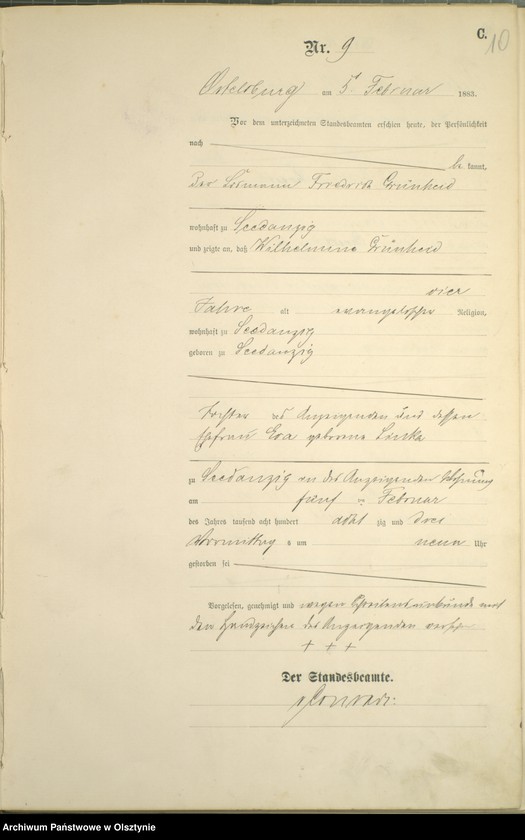 C.
10
Nr. 9
Ortelsburg am 5t Februar 1883.
Vor dem unterzeichneten Standesbeamten erschien heute, der Persönlichkeit
nach
be kannt,
Der Losmann Friedrich Grünheid
wohnhaft zu Seedanzig
und zeigte an, daß Wilhelmine Grünheid
vier
Jahre alt evangelischer Religion,
wohnhaft zu Seedanzig
geboren zu Seedanzig
Tochter des Anzeigenden und dessen
Ehefrau Eva geborene
zu Seedanzig in des Anzeigenden Wohnung
am fünf ten Februar
des Jahres tausend acht hundert acht zig und drei
Vormittag s um neun Uhr
gestorben sei
Vorgelesen, genehmigt und wegen Schreibensunkunde mit
den Handzeichen des Anzeigenden verseh
+ + +
Der Standesbeamte.
Archiwum Państwowe w Olsztynie